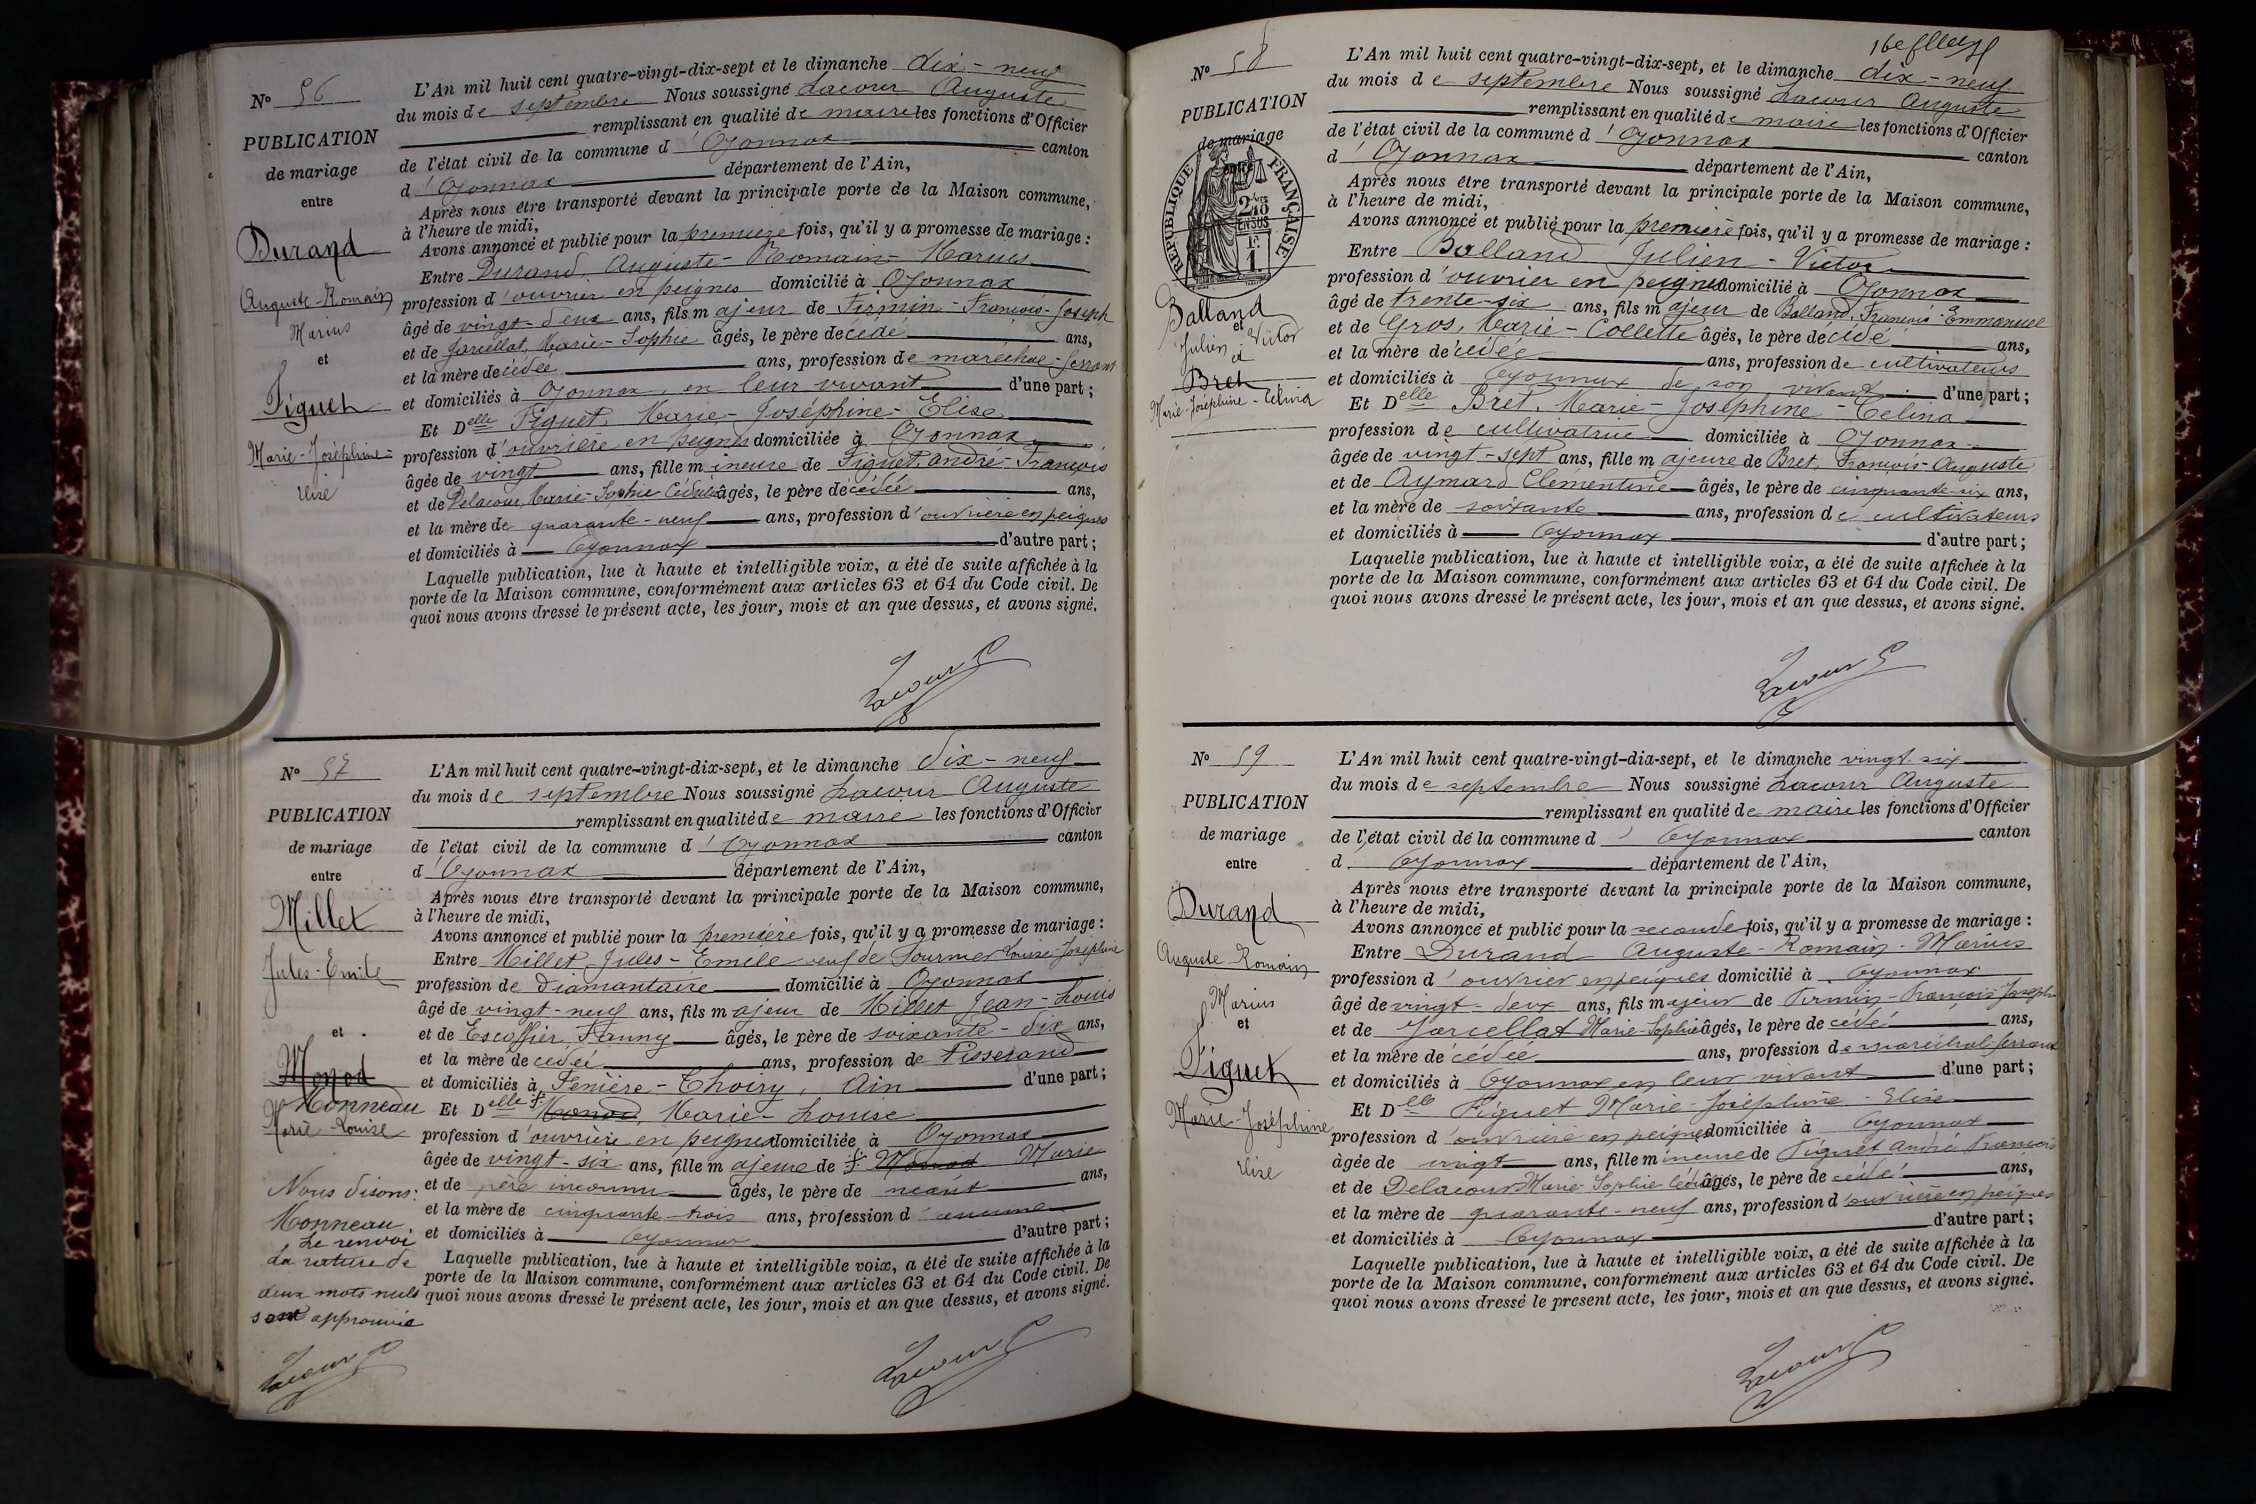 N° 56
PUBLICATION
de mariage
entre
Durand
Auguste-Romain
Marius
et
Piguet
Marie-Joséphine-
Elise
L'An mil huit cent quatre-vingt-dix-sept et le dimanche dix-neuf
du mois de septembre Nous soussigné Lacour Auguste
remplissant en qualité de maire les fonctions d'Officier
de l'état civil de la commune d'Oyonnax canton
d'Oyonnax département de l'Ain,
Après nous être transporté devant la principale porte de la Maison commune,
à l'heure de midi,
Avons annoncé et publié pour la première fois, qu'il y a promesse de mariage :
Entre Durand, Auguste-Romain-Marius
profession d'ouvrier en peignes domicilié à Oyonnax
âgé de vingt-deux ans, fils majeur de Firmin-François-Joseph
et de Jarcellat, Marie-Sophie âgés, le père décédé ans,
et la mère décédée ans, profession de maréchal-ferrant
et domiciliés à Oyonnax, en leur vivant d'une part ;
Et Delle Piguet, Marie-Joséphine-Elise
profession d'ouvrière en peignes domiciliée à Oyonnax
âgée de vingt ans, fille mineure de Piguet, André-François
et de Delacour, Marie-Sophie âgés, le père décédé ans,
et la mère de quarante-neuf ans, profession d'ouvrière en peignes
et domiciliés à Oyonnax d'autre part ;
Laquelle publication, lue à haute et intelligible voix, a été de suite affichée à la
porte de la Maison commune, conformément aux articles 63 et 64 du Code civil. De
quoi nous avons dressé le présent acte, les jour, mois et an que dessus, et avons signé.
Lacour
N° 57
PUBLICATION
de mariage
entre
Millet
Jules-Emile
et
Monod
Monneau
Marie-Louise
Nous disons:
Monneau.
Le renvoi
la rature de
deux mots nuls
sont approuvés
Lacour
L'An mil huit cent quatre-vingt-dix-sept, et le dimanche dix-neuf
du mois de septembre Nous soussigné Lacour Auguste
remplissant en qualité de maire les fonctions d'Officier
de l'état civil de la commune d'Oyonnax canton
d'Oyonnax département de l'Ain,
Après nous être transporté devant la principale porte de la Maison commune,
à l'heure de midi,
Avons annoncé et publié pour la première fois, qu'il y a promesse de mariage :
Entre Millet Jules-Emile veuf de Louise-Joséphine
profession de diamantaire domicilié à Oyonnax
âgé de vingt-neuf ans, fils majeur de Millet Jean-Louis
et de Escoffier, Fanny âgés, le père de soixante-dix ans,
et la mère décédée ans, profession de Tisserand
et domiciliés à Fenière-Thoiry, Ain d'une part ;
Et Delle Monod, Marie-Louise
profession d'ouvrière en peignes domiciliée à Oyonnax
âgée de vingt-six ans, fille majeure de Monod Marie
et de père inconnu âgés, le père de néant ans,
et la mère de cinquante-trois ans, profession d'aucune
et domiciliés à Oyonnax d'autre part ;
Laquelle publication, lue à haute et intelligible voix, a été de suite affichée à la
porte de la Maison commune, conformément aux articles 63 et 64 du Code civil. De
quoi nous avons dressé le présent acte, les jour, mois et an que dessus, et avons signé.
Lacour
16e
N° 58
PUBLICATION
de mariage
entre
RÉPUBLIQUE FRANÇAISE
2/10 EN SUS
1 F.
Balland
et
Julien Victor
et
Bret
Marie-Joséphine-Célina
L'An mil huit cent quatre-vingt-dix-sept, et le dimanche dix-neuf
du mois de septembre Nous soussigné Lacour Auguste
remplissant en qualité de maire les fonctions d'Officier
de l'état civil de la commune d'Oyonnax canton
d'Oyonnax département de l'Ain,
Après nous être transporté devant la principale porte de la Maison commune,
à l'heure de midi,
Avons annoncé et publié pour la première fois, qu'il y a promesse de mariage :
Entre Balland Julien-Victor
profession d'ouvrier en peignes domicilié à Oyonnax
âgé de trente-six ans, fils majeur de Balland, François-Emmanuel
et de Gros, Marie-Collette âgés, le père décédé ans,
et la mère décédée ans, profession de cultivateurs
et domiciliés à Oyonnax de son vivant d'une part ;
Et Delle Bret, Marie-Joséphine-Célina
profession de cultivatrice domiciliée à Oyonnax
âgée de vingt-sept ans, fille majeure de Bret, François-Auguste
et de Aymard Clémentine âgés, le père de cinquante-six ans,
et la mère de soixante ans, profession de cultivateurs
et domiciliés à Oyonnax d'autre part ;
Laquelle publication, lue à haute et intelligible voix, a été de suite affichée à la
porte de la Maison commune, conformément aux articles 63 et 64 du Code civil. De
quoi nous avons dressé le présent acte, les jour, mois et an que dessus, et avons signé.
Lacour
N° 59
PUBLICATION
de mariage
entre
Durand
Auguste-Romain
Marius
et
Piguet
Marie-Joséphine
Elise
L'An mil huit cent quatre-vingt-dix-sept, et le dimanche vingt-six
du mois de septembre Nous soussigné Lacour Auguste
remplissant en qualité de maire les fonctions d'Officier
de l'état civil de la commune d'Oyonnax canton
d'Oyonnax département de l'Ain,
Après nous être transporté devant la principale porte de la Maison commune,
à l'heure de midi,
Avons annoncé et publié pour la seconde fois, qu'il y a promesse de mariage :
Entre Durand Auguste-Romain-Marius
profession d'ouvrier en peignes domicilié à Oyonnax
âgé de vingt-deux ans, fils majeur de Firmin-François-Joseph
et de Jarcellat Marie-Sophie âgés, le père décédé ans,
et la mère décédée ans, profession de maréchal-ferrant
et domiciliés à Oyonnax en leur vivant d'une part ;
Et Delle Piguet Marie-Joséphine-Elise
profession d'ouvrière en peignes domiciliée à Oyonnax
âgée de vingt ans, fille mineure de Piguet André François
et de Delacour Marie-Sophie âgés, le père décédé ans,
et la mère de quarante-neuf ans, profession d'ouvrière en peignes
et domiciliés à Oyonnax d'autre part ;
Laquelle publication, lue à haute et intelligible voix, a été de suite affichée à la
porte de la Maison commune, conformément aux articles 63 et 64 du Code civil. De
quoi nous avons dressé le présent acte, les jour, mois et an que dessus, et avons signé.
Lacour